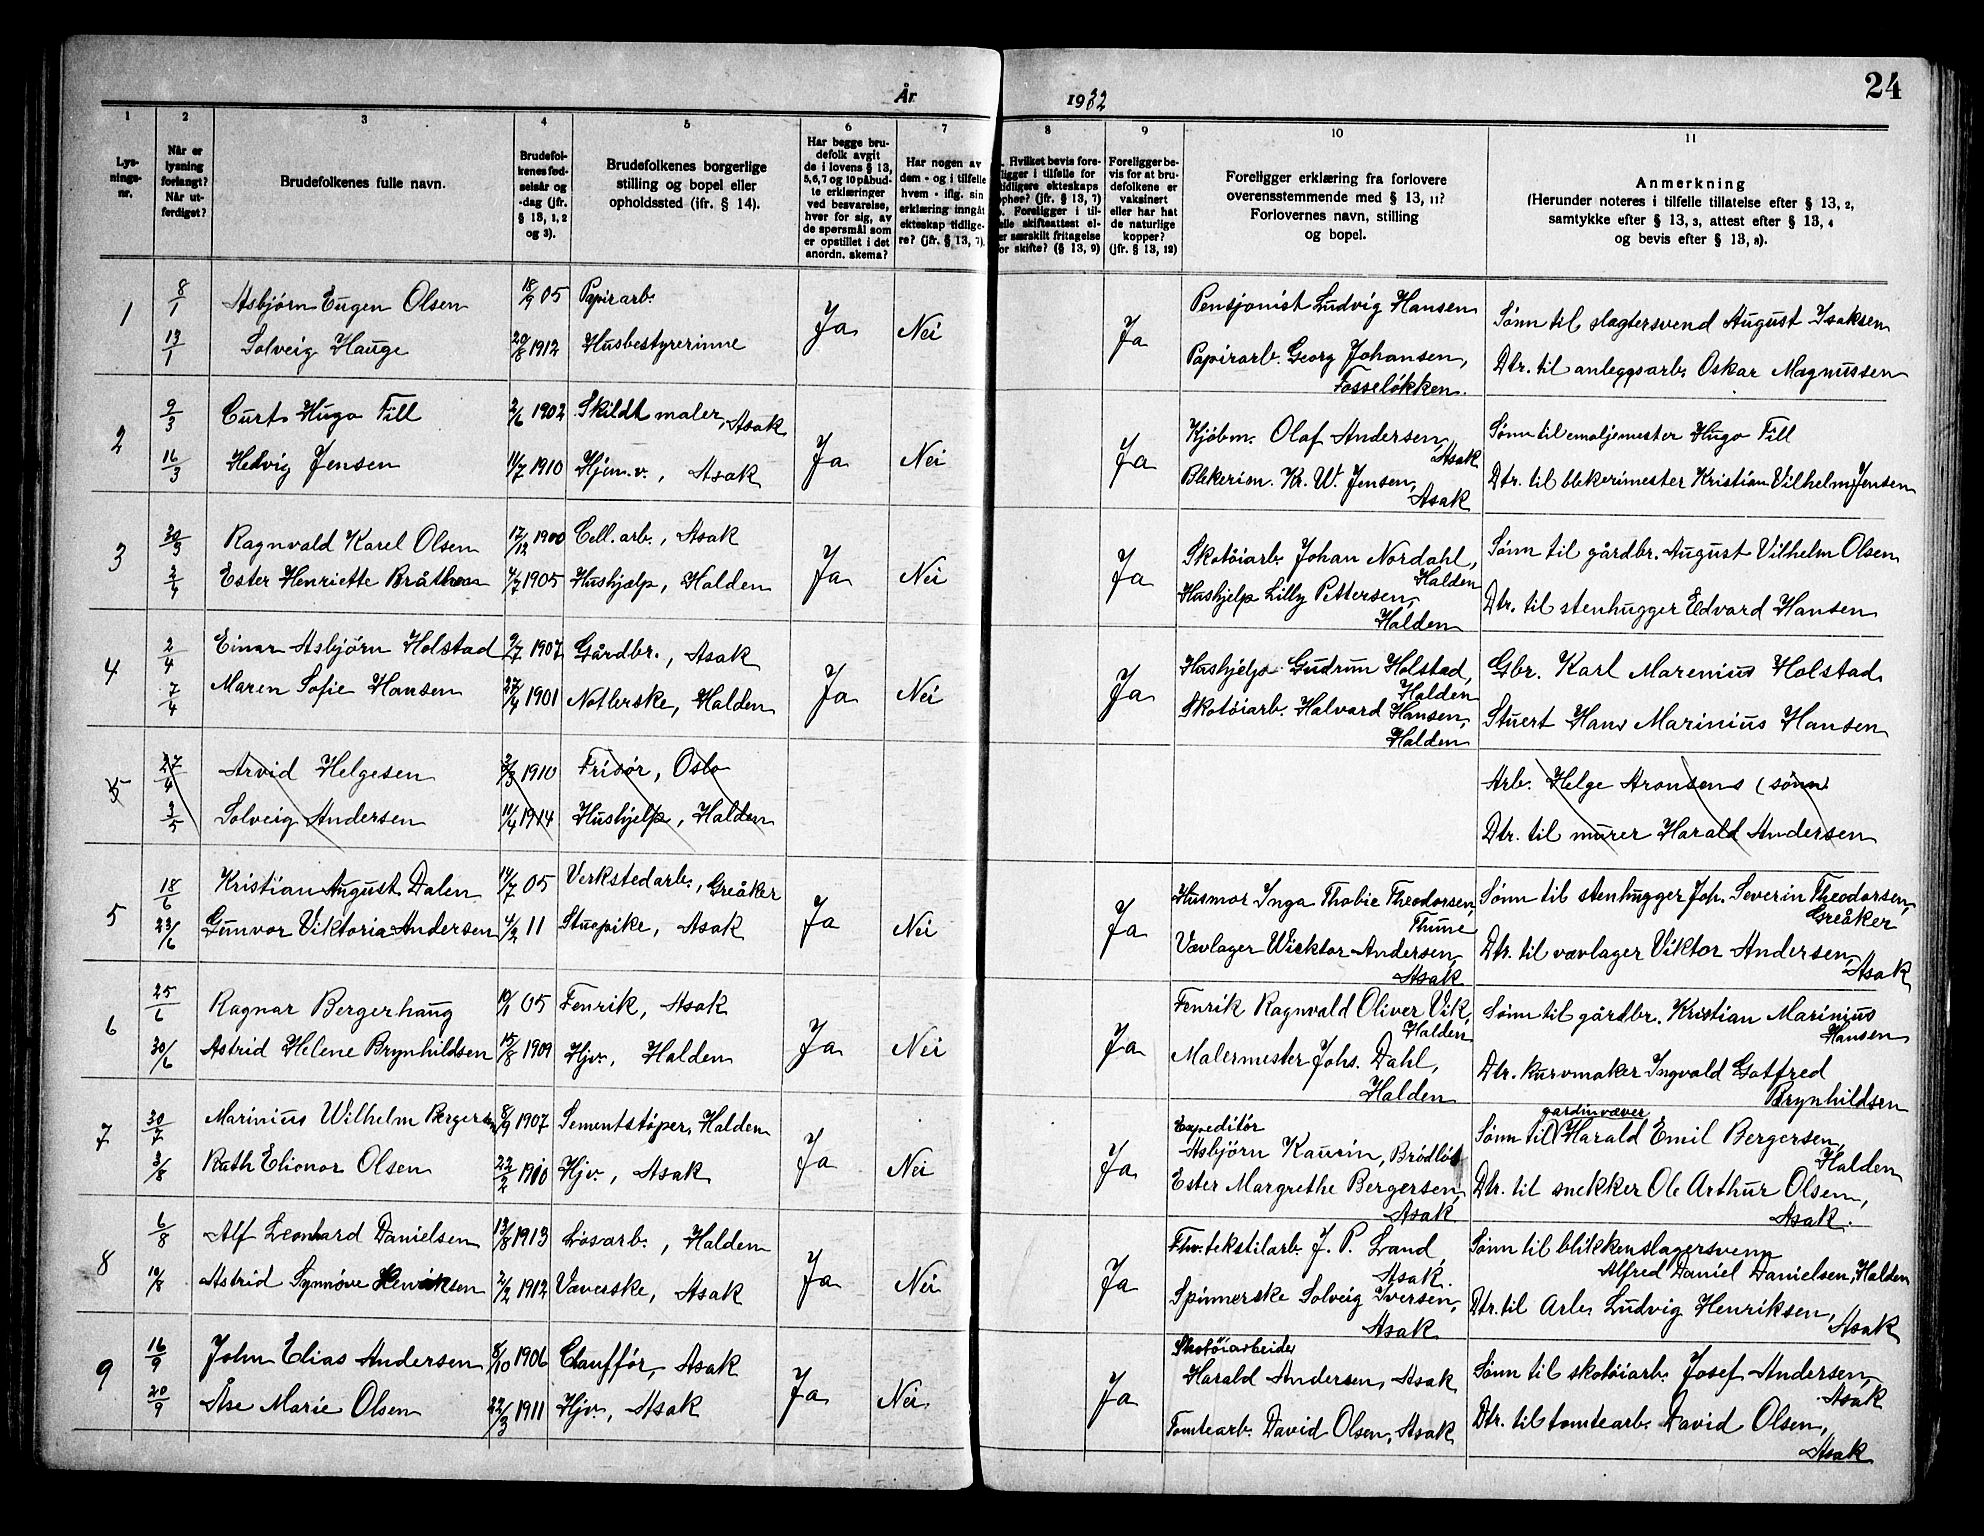 24
År 1932
1 2 3 4 5 6 7 8 9 10 11
Lys-
nings-
nr.
Når er
lysning
forlangt?
Når ut-
ferdiget?
Brudefolkenes fulle navn.
Brudefol-
kenes fød-
selsår og
-dag (jfr.
§ 13, 1, 2
og 3).
Brudefolkenes borgerlige
stilling og bopel eller
opholdssted (ifr. § 14).
Har begge bru-
defolk avgit
de i lovens § 13,
5, 6, 7 og 10 påbud-
te erklæringer
ved besvarelse,
hver for sig, av
de spørsmål som
er opstillet i det
anordn. skema?
Har nogen av
dem - og i tilfelle
hvem - iflg. sin
erklæring inngåt
ekteskap tidlige-
re? (jfr. § 13, 7).
. Hvilket bevis fore-
ligger i tilfelle for
tidligere ekteskaps
ophør? (jfr. § 13, 7)
. Foreligger i til-
elle skifteattest el-
er særskilt fritagelse
or skifte? (§ 13, 9)
Foreligger be-
vis for at bru-
defolkene er
vaksinert
eller har hat
de naturlige
kopper?
(jfr. § 13, 12)
Foreligger erklæring fra forlovere
overensstemmende med § 13, 11?
Forlovernes navn, stilling
og bopel.
Anmerkning
(Herunder noteres i tilfelle tillatelse efter § 13, 2,
samtykke efter § 13, 3, attest efter § 13, 4
og bevis efter § 13, 8).
1 8/1 Asbjørn Eugen Olsen 18/9 05 Papirarb. Ja Nei Ja Pensjonist Ludvig Hansen Sønn til slagtersvend August Isaksen
13/1 Solveig Hauge 20/8 1912 Husbestyrerinne Papirarb. Georg Johansen, Dtr. til anleggsarb. Oskar Magnussen
Fosseløkken.
2 9/3 Curt Hugo Till 2/6 1902 Skildtmaler, Asak Ja Nei Ja Kjøbm. Olaf Andersen, Sønn til emaljemester Hugo Till
Asak
16/3 Hedvig Jensen 11/7 1910 Hjem.v., Asak Blekerim. Kr. W. Jensen, Dtr. til blekerimester Kristian Vilhelm Jensen
Asak
3 30/3 Ragnvald Karel Olsen 17/12 1900 Cell.arb., Asak Ja Nei Ja Skotøiarb. Johan Nordahl, Sønn til gårdbr. August Vilhelm Olsen
Halden
2/4 Ester Henriette Bråthen 4/7 1905 Hushjælp, Halden Hushjelp Lilly Pettersen, Dtr. til stenhugger Edvard Hansen
Halden
4 2/4 Einar Asbjørn Holstad 9/7 1907 Gårdbr., Asak Ja Nei Ja Hushjelp Gudrun Holstad, Gbr. Karl Marenius Holstad
Halden
7/4 Maren Sofie Hansen 27/4 1901 Notlerske, Halden Skotøiarb. Halvard Hansen, Stuert Hans Marinius Hansen
Halden
5 27/4 Arvid Helgesen 3/3 1910 Frisør, Oslo Arb. Helge Aronsens (sønn)
3/5 Solveig Andersen 11/4 1914 Hushjelp, Halden Dtr. til murer Harald Andersen
5 18/6 Kristian August Dalen 14/7 05 Verkstedarb., Greåker Ja Nei Ja Husmor Inga Thobie Theodorsen, Sønn til stenhugger Joh. Severin Theodorsen,
Thune Greåker
23/6 Gunvor Viktoria Andersen 4/2 11 Stuepike, Asak Vævlager Wicktor Andersen, Dtr. til vævlager Viktor Andersen,
Asak Asak
6 25/6 Ragnar Bergerhaug 19/1 05 Fenrik, Asak Ja Nei Ja Fenrik Ragnvald Oliver Vik, Sønn til gårdbr. Kristian Marinius
Halden Hansen
30/6 Astrid Helene Brynhildsen 15/8 1909 Hjv., Halden Malermester Johs. Dahl, Dtr. Kurvmaker Ingvald Gotfred
Halden Brynhildsen
7 30/7 Marinius Wilhelm Bergersen 8/9 1907 Sementstøper, Halden Ja Nei Ja Expeditør gardinvæver
Asbjørn Kaurin, Brødløs Sønn til Harald Emil Bergersen,
Halden
3/8 Ruth Elionor Olsen 22/2 1910 Hjv., Asak Ester Margrethe Bergersen, Dtr. til snekker Ole Arthur Olsen,
Asak Asak.
8 6/8 Alf Leonhard Danielsen 13/8 1913 Løsarb., Halden Ja Nei Ja Fhv. tekstilarb. J. P. Land, Sønn til blikkenslagersvenn
Asak. Alfred Daniel Danielsen, Halden
10/8 Astrid Synnøve Henriksen 2/2 1912 Væverske, Asak Spinnerske Solveig Iversen, Dtr. til Arb. Ludvig Henriksen,
Asak Asak
9 16/9 John Elias Andersen 8/10 1906 Chauffør, Asak Ja Nei Ja Skotøiarbeider
Harald Andersen, Asak Sønn til skotøiarb. Josef Andersen,
Asak
20/9 Åse Marie Olsen 22/3 1911 Hjv., Asak Tomtearb. David Olsen, Asak Dtr. til tomtearb. David Olsen,
Asak